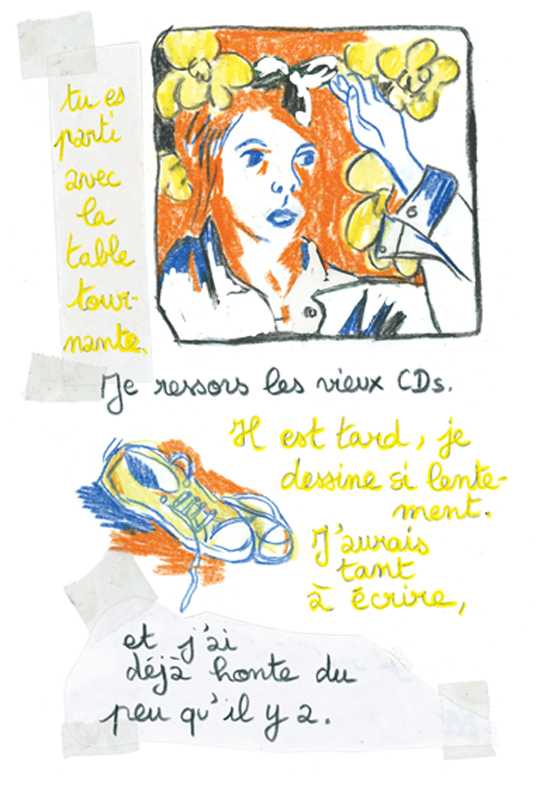 tu es
parti
avec
la
table
tour-
nante.
Je ressors les vieux CDs.
Il est tard, je
dessine si lente-
ment.
J'aurais
tant
à écrire,
et j'ai
déjà honte du
peu qu'il y a.